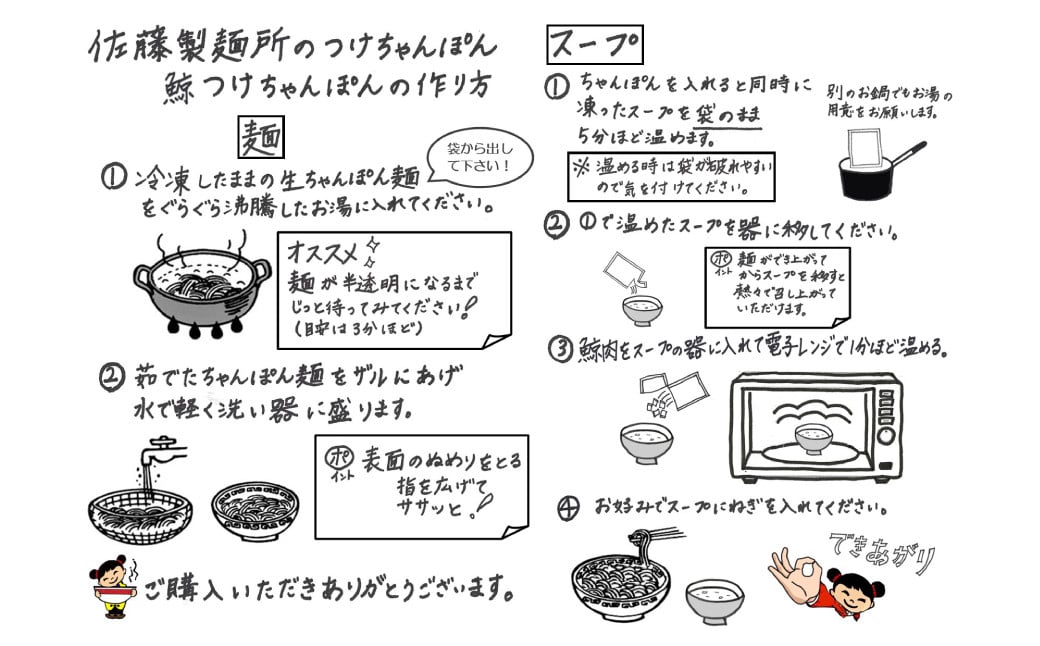 佐藤製麺所のつけちゃんぽん
鯨つけちゃんぽんの作り方
麺
① 冷凍したままの生ちゃんぽん麺
をぐらぐら沸騰したお湯に入れてください。
袋から出し
て下さい！
オススメ
麺が半透明になるまで
じっと待ってみてください！
(目安は3分ほど)
② 茹でたちゃんぽん麺をザルにあげ
水で軽く洗い器に盛ります。
ポイント 表面のぬめりをとる
指を広げて
ササッと！
ご購入いただきありがとうございます。
スープ
① ちゃんぽんを入れると同時に
凍ったスープを袋のまま
5分ほど温めます。
※ 温める時は袋が破れやすい
ので気を付けてください。
別のお鍋でもお湯の
用意をお願いします。
② ①で温めたスープを器に移してください。
ポイント 麺ができ上がって
からスープを移すと
熱々で召し上がって
いただけます。
③ 鯨肉をスープの器に入れて電子レンジで1分ほど温める。
④ お好みでスープにねぎを入れてください。
できあがり